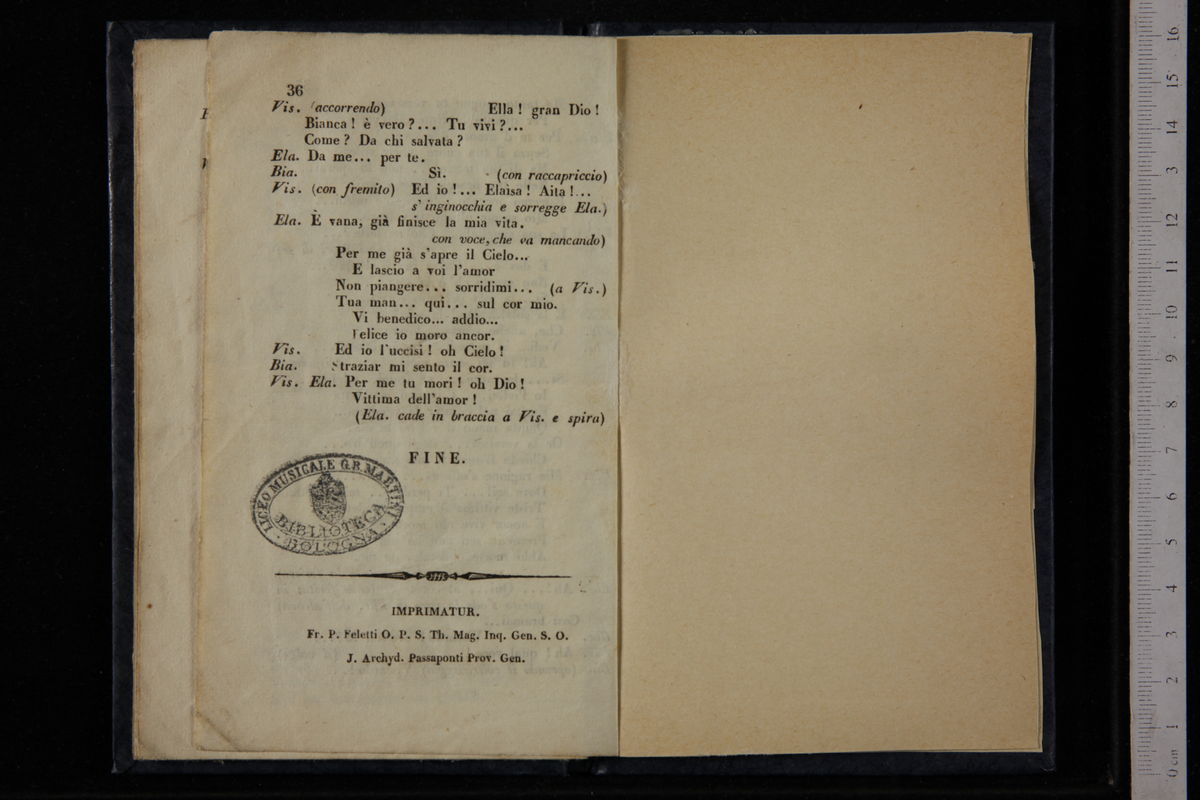 36
Vis. (accorrendo) Ella! gran Dio!
Bianca! è vero?... Tu vivi?...
Come? Da chi salvata?
Ela. Da me... per te.
Bia. Sì. (con raccapriccio)
Vis. (con fremito) Ed io!... Elaisa! Aita!...
s'inginocchia e sorregge Ela.)
Ela. È vana, già finisce la mia vita.
con voce, che va mancando)
Per me già s'apre il Cielo...
E lascio a voi l'amor
Non piangere... sorridimi... (a Vis.)
Tua man... quì... sul cor mio.
Vi benedico... addio...
Felice io moro ancor.
Vis. Ed io l'uccisi! oh Cielo!
Bia. Straziar mi sento il cor.
Vis. Ela. Per me tu mori! oh Dio!
Vittima dell'amor!
(Ela. cade in braccia a Vis. e spira)
FINE.
LICEO MUSICALE G.B. MARTINI
BIBLIOTECA
BOLOGNA
IMPRIMATUR.
Fr. P. Feletti O. P. S. Th. Mag. Inq. Gen. S. O.
J. Archyd. Passaponti Prov. Gen.
16
15
14
13
12
11
10
9
8
7
6
5
4
3
2
1
0 cm